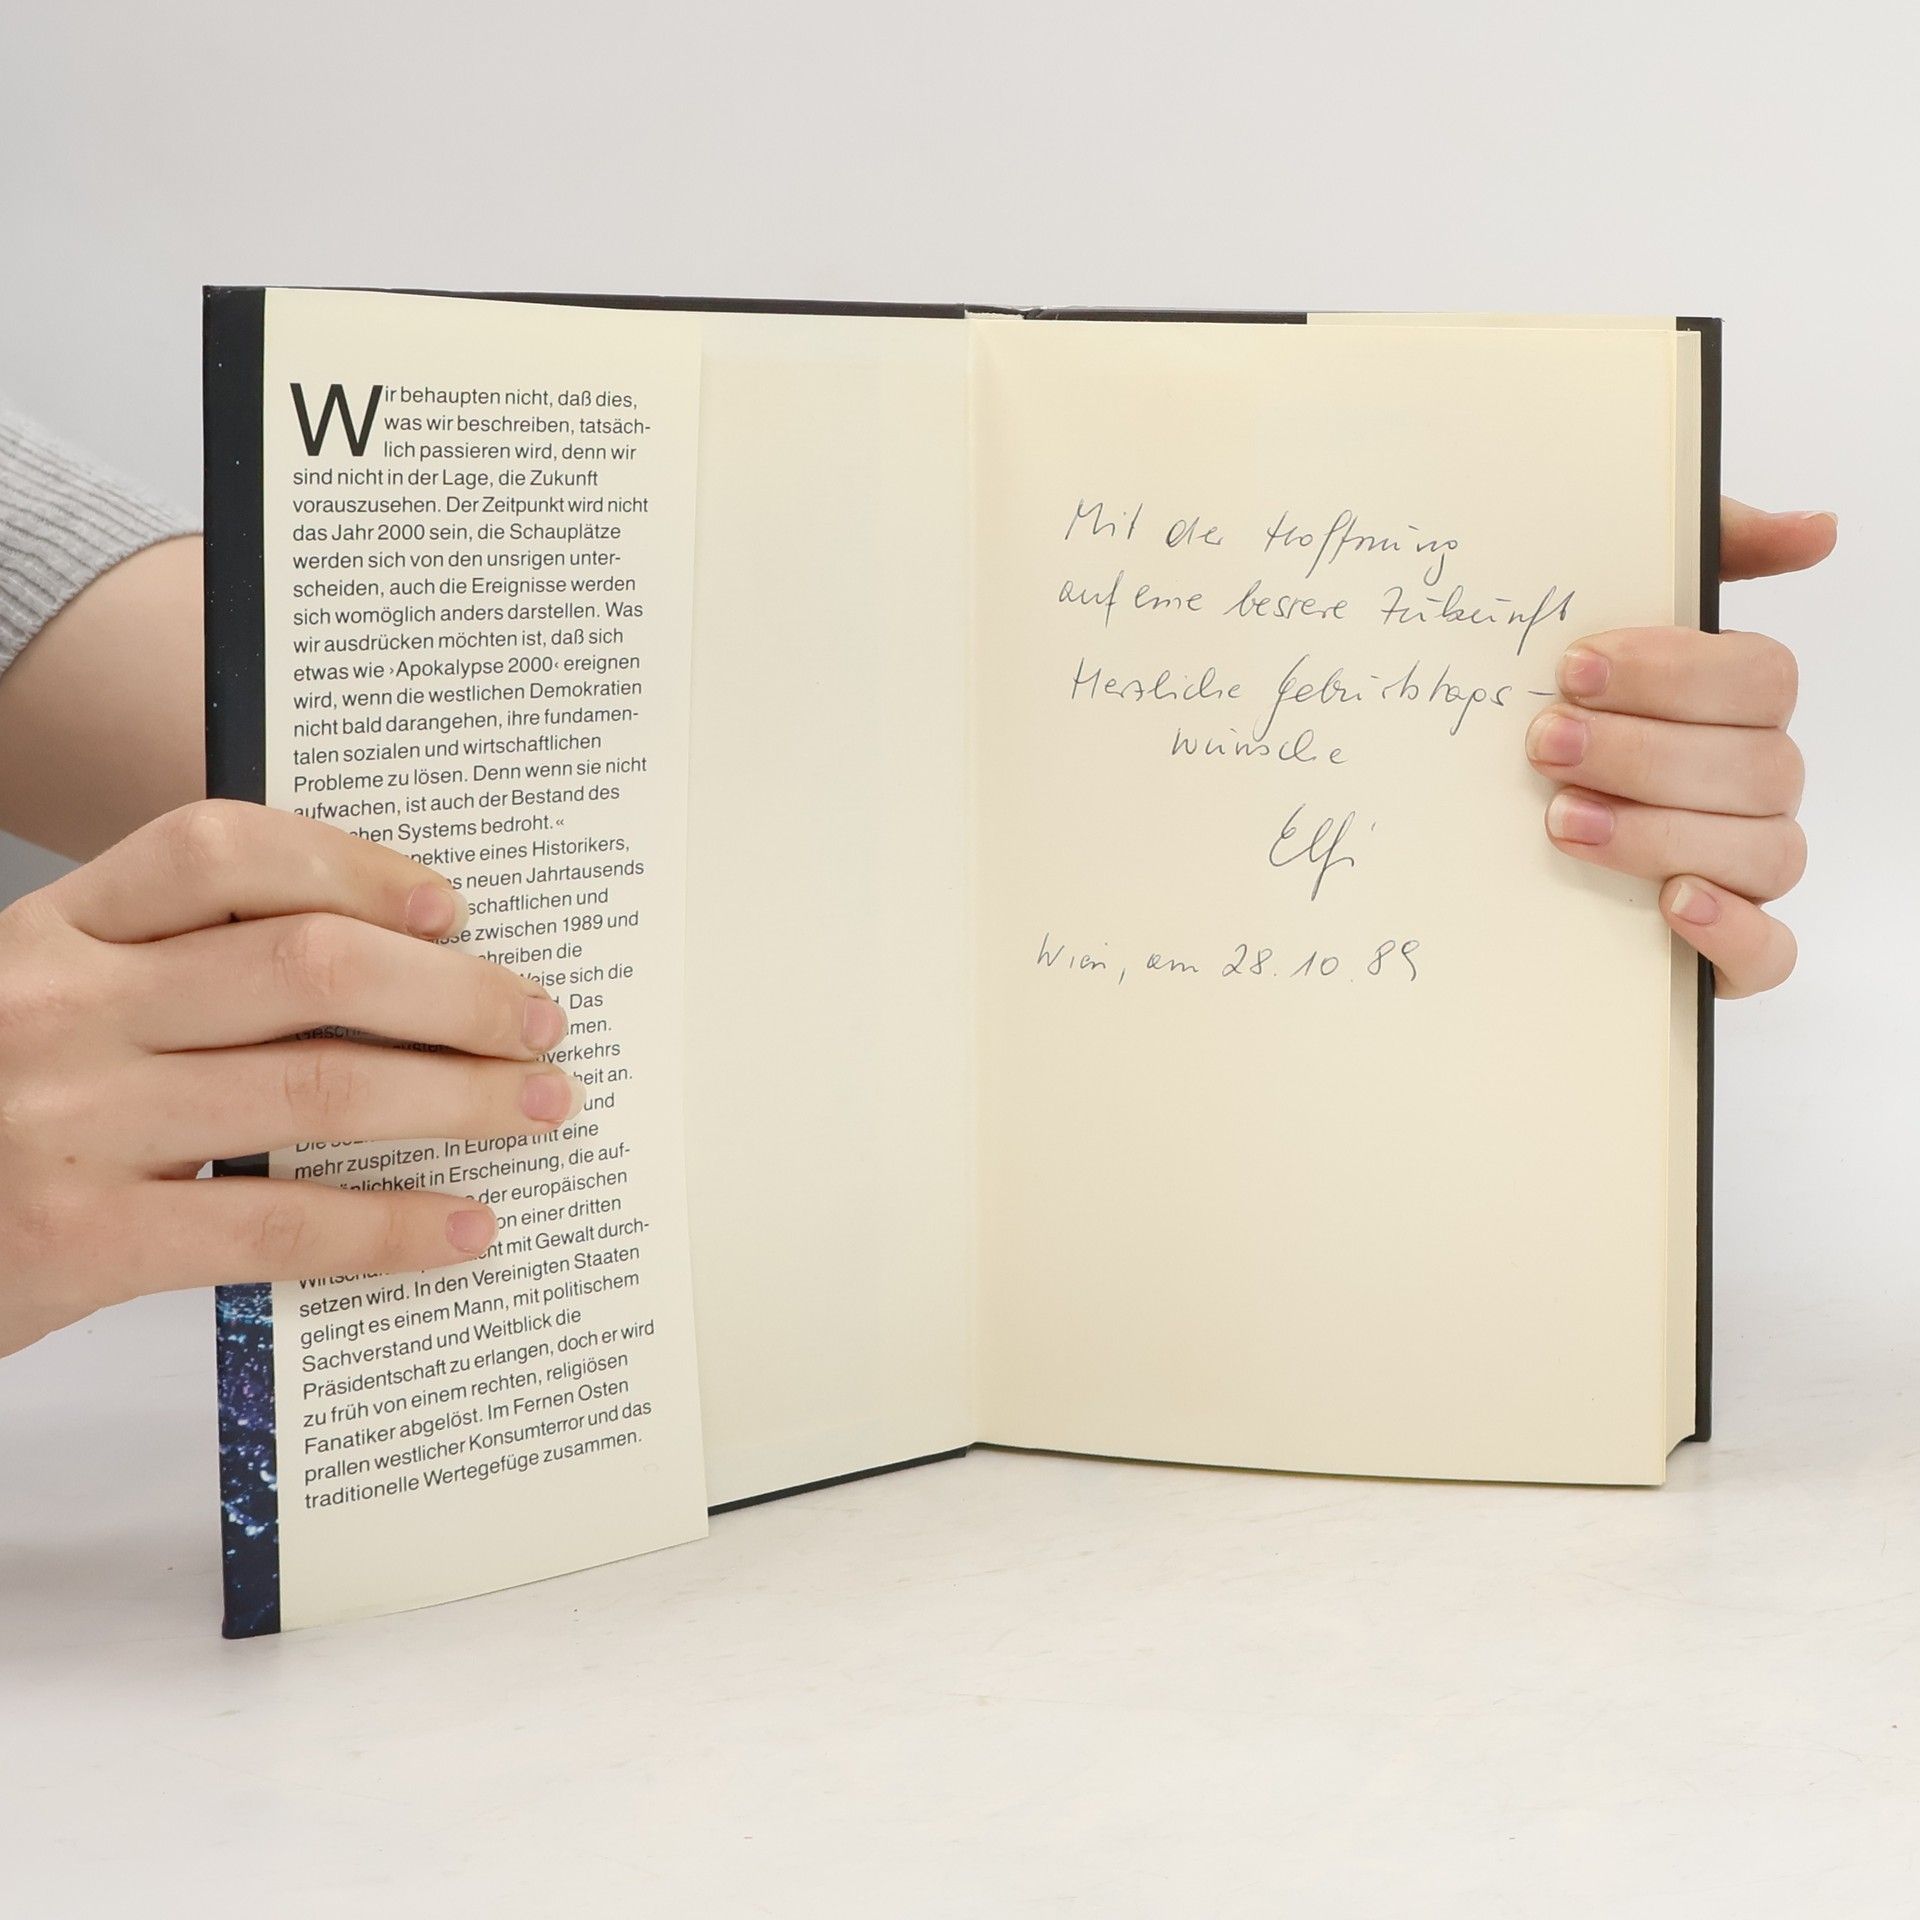 Wir behaupten nicht, daß dies,
was wir beschreiben, tatsäch-
lich passieren wird, denn wir
sind nicht in der Lage, die Zukunft
vorauszusehen. Der Zeitpunkt wird nicht
das Jahr 2000 sein, die Schauplätze
werden sich von den unsrigen unter-
scheiden, auch die Ereignisse werden
sich womöglich anders darstellen. Was
wir ausdrücken möchten ist, daß sich
etwas wie ›Apokalypse 2000‹ ereignen
wird, wenn die westlichen Demokratien
nicht bald darangehen, ihre fundamen-
talen sozialen und wirtschaftlichen
Probleme zu lösen. Denn wenn sie nicht
aufwachen, ist auch der Bestand des
Systems bedroht.«
eines Historikers,
neuen Jahrtausends
und
zwischen 1989 und
die
sich die
Das
an.
und
eine
mehr zuspitzen. In Europa tritt eine
in Erscheinung, die auf-
der europäischen
einer dritten
mit Gewalt durch-
setzen wird. In den Vereinigten Staaten
gelingt es einem Mann, mit politischem
Sachverstand und Weitblick die
Präsidentschaft zu erlangen, doch er wird
zu früh von einem rechten, religiösen
Fanatiker abgelöst. Im Fernen Osten
prallen westlicher Konsumterror und das
traditionelle Wertegefüge zusammen.
Mit der Hoffnung
auf eine bessere Zukunft
Herzliche Geburtstags –
wünsche
Elfi
Wien, am 28. 10. 89